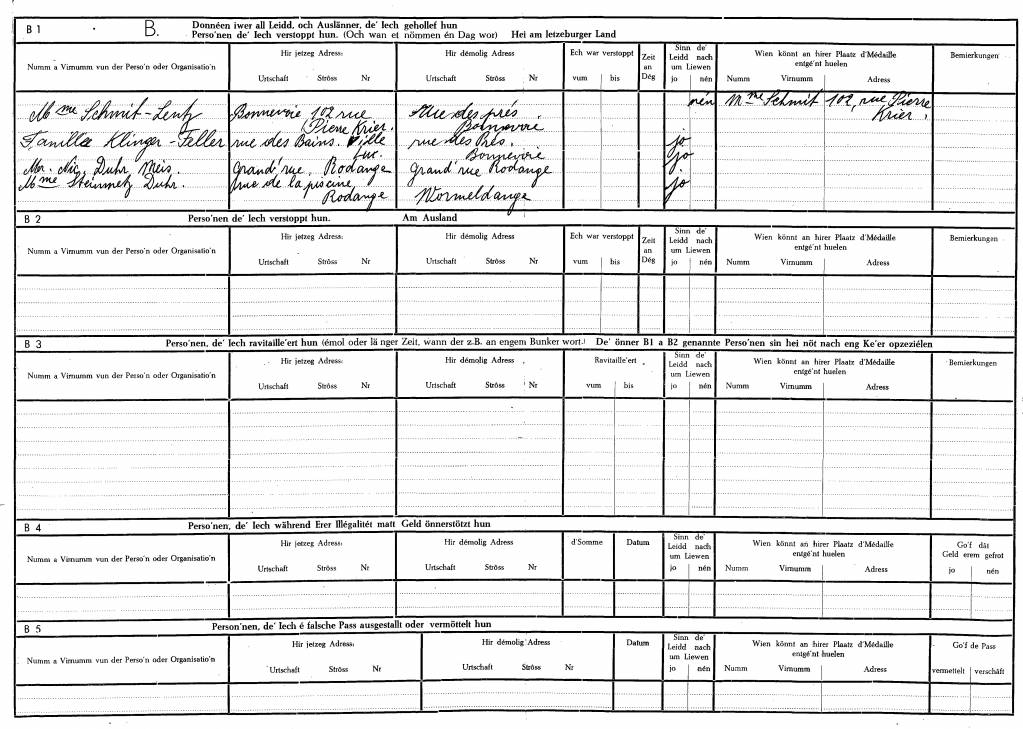 B 1 B. Donnéen iwer all Leidd, och Auslänner, de' Iech gehollef hun
Perso'nen de' Iech verstoppt hun. (Och wan et nömmen én Dag wor) Hei am letzeburger Land
Numm a Virnumm vun der Perso'n oder Organisatio'n
Hir jetzeg Adress:
Urtschaft Ströss Nr
Hir démolig Adress
Urtschaft Ströss Nr
Ech war verstoppt
vum bis
Zeit an Dég
Sinn de' Leidd nach um Liewen
jo nén
Wien könnt an hirer Plaatz d'Médaille entgé'nt huelen
Numm Virnumm Adress
Bemierkungen
Mme Schmit-Lentz Bonnevoie 102 rue Rue des prés nén Mme Schmit 102, rue Pierre
Pierre Krier. Bonnevoie Krier.
Familla Klinger-Feller rue des Bains. Ville rue des Prés. jo
Luc. Bonnevoie jo
Mer. Nic. Duhr, Meis. Grand' rue, Rodange Grand' rue Rodange
Mme Steinmetz Duhr. rue de la piscine jo
Rodange Wormeldange
B 2 Perso'nen de' Iech verstoppt hun. Am Ausland
Numm a Virnumm vun der Perso'n oder Organisatio'n
Hir jetzeg Adress:
Urtschaft Ströss Nr
Hir démolig Adress
Urtschaft Ströss Nr
Ech war verstoppt
vum bis
Zeit an Dég
Sinn de' Leidd nach um Liewen
jo nén
Wien könnt an hirer Plaatz d'Médaille entgé'nt huelen
Numm Virnumm Adress
Bemierkungen
B 3 Perso'nen, de' Iech ravitaille'ert hun (émol oder lä nger Zeit, wann der z.B. an engem Bunker wort.) De' önner B1 a B2 genannte Perso'nen sin hei nöt nach eng Ke'er opzeziélen
Numm a Virnumm vun der Perso'n oder Organisatio'n
Hir jetzeg Adress:
Urtschaft Ströss Nr
Hir démolig Adress
Urtschaft Ströss Nr
Ravitaille'ert
vum bis
Sinn de' Leidd nach um Liewen
jo nén
Wien könnt an hirer Plaatz d'Médaille entgé'nt huelen
Numm Virnumm Adress
Bemierkungen
B 4 Perso'nen, de' Iech während Erer Illégalitét matt Geld önnerstötzt hun
Numm a Virnumm vun der Perso'n oder Organisatio'n
Hir jetzeg Adress:
Urtschaft Ströss Nr
Hir démolig Adress
Urtschaft Ströss Nr
d'Somme
Datum
Sinn de' Leidd nach um Liewen
jo nén
Wien könnt an hirer Plaatz d'Médaille entgé'nt huelen
Numm Virnumm Adress
Go'f dât Geld erem gefrot
jo nén
B 5 Person'nen, de' Iech é falsche Pass ausgestallt oder vermöttelt hun
Numm a Virnumm vun der Perso'n oder Organisatio'n
Hir jetzeg Adress:
Urtschaft Ströss Nr
Hir démolig Adress
Urtschaft Ströss Nr
Datum
Sinn de' Leidd nach um Liewen
jo nén
Wien könnt an hirer Plaatz d'Médaille entgé'nt huelen
Numm Virnumm Adress
Go'f de Pass
vermettelt verschâft